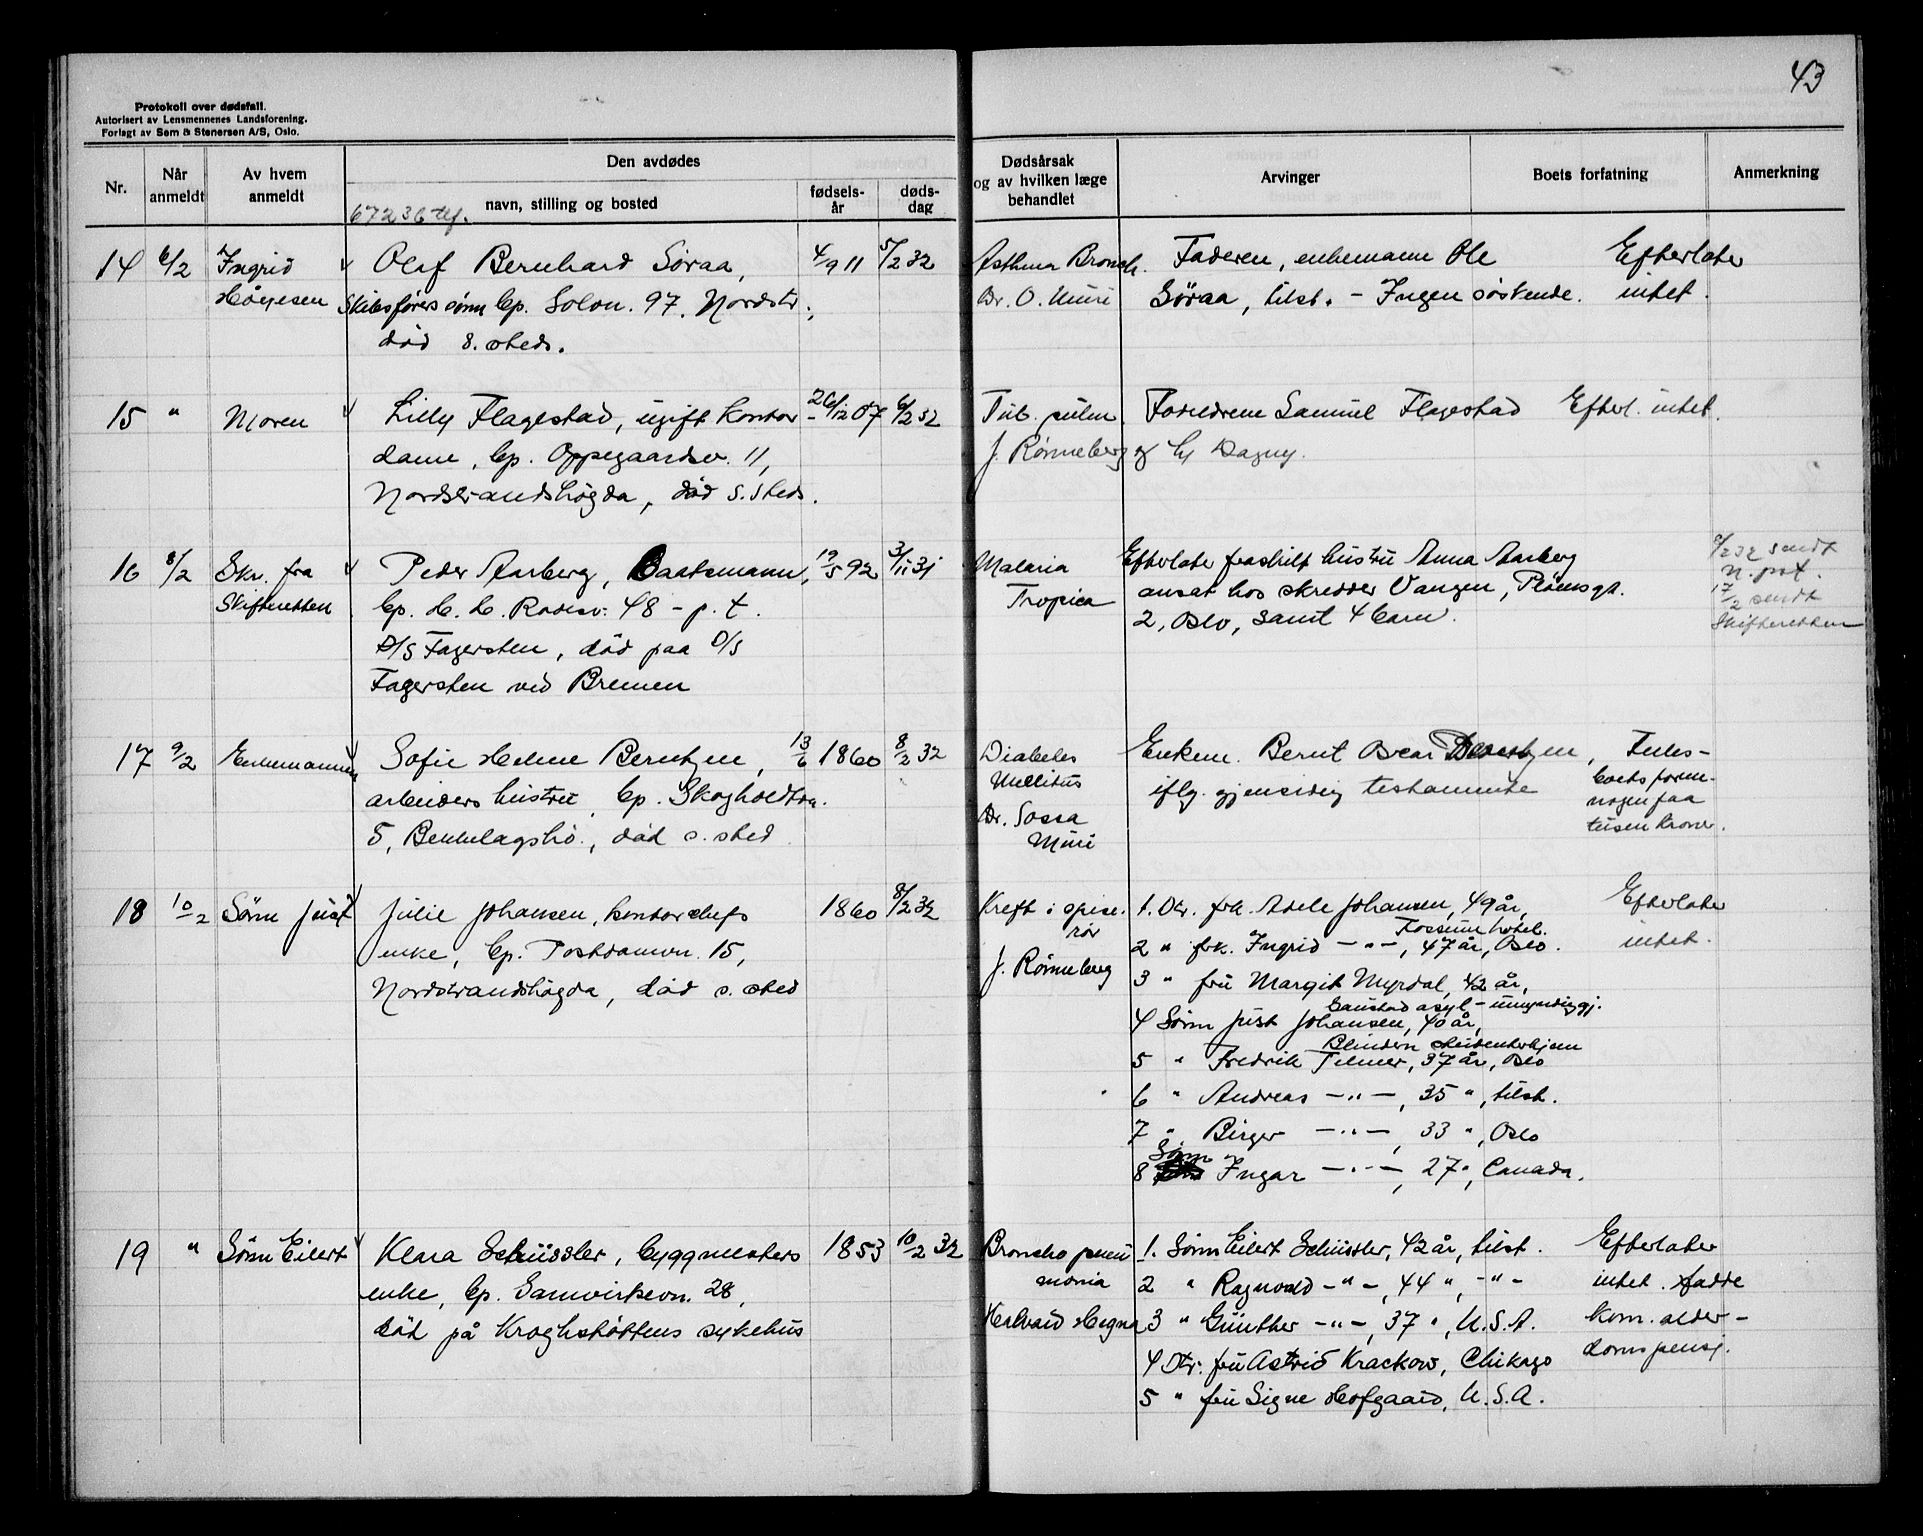 43
Protokoll over dødsfall.
Autorisert av Lensmennenes Landsforening.
Forlagt av Sem & Stenersen A/S, Oslo.
Nr.
Når anmeldt
Av hvem anmeldt
Den avdødes
navn, stilling og bosted
fødsels-år
døds-dag
Dødsårsak og av hvilken læge behandlet
Arvinger
Boets forfatning
Anmerkning
67236 tlf.
14 6/2 Ingrid Olaf Bernhard Søraa, 4/9 11 5/2 32 Asthma Bronch. Faderen, enkemann Ole Efterlater
Skibsførers sønn bp. Solv. 97. Nordstr., Dr. O. Muri Søraa, tilst. - Ingen søskende. intet.
død s. steds.
15 " Moren Lilly Flagestad, ugift kontor 26/12 07 6/2 32 Tub. pulm. Foreldrene Samuel Flagestad Efterl. intet.
dame, bp. Oppegaardsv. 11, J. Rønneberg og h/ Dagny.
Nordstrandshøgda, død s. steds.
16 8/2 Skr. fra Peder Aarberg, Baatsmann, 19/5 92 3/11 31 Malaria Efterlater fraskilt hustru Anna Aarberg 9/2 32 sendt
Skifteretten bp. H. H. Radesv. 48 - p. t. Tropica ansat hos skredder Vangen, Pløensgt. n. pol.
D/S Fagersten, død paa D/S 2, Oslo, samt 4 barn. 17/2 sendt
Fagersten ved Bremen Skifteretten
17 9/2 Enkemannen Sofie Helene Berntzen, 13/6 1860 8/2 32 Diabetes Enkem. Bernt Oscar Berntzen, Felles-
arbeiders hustru, bp. Skogholtvn. Mellitus iflg. gjensidig testamente boets formu-
5, Bekkelagshø., død s. sted Dr. Sossa nogen faa
Muri tusen kroner.
18 10/2 Sønn Just Julie Johansen, kontorchefs 1860 8/2 32 Kreft i spise- 1. Dtr. frk. Adele Johansen, 49 år, Efterlater
rør Fossum hotel.
enke, bp. Postdamvn. 15, 2 " frk. Ingrid - " -, 47 år, Oslo. intet.
Nordstrandshøgda, død s. sted J. Rønneberg 3 " fru Margit Myrdal, 42 år,
Gaustad asyl - umyndiggj.
4 Sønn Just Johansen, 40 år,
Blindern studenterhjem
5 " Fredrik Tilmer, 37 år, Oslo
6 " Andreas - " -, 35 ", tilst.
7 " Birger - " -, 33 ", Oslo
8 Sønn Ingar - " -, 27 ", Canada.
19 " Sønn Eilert Klara Schüssler, byggmesters 1853 10/2 32 Broncho pneu 1. Sønn Eilert Schüssler, 42 år, tilst. Efterlater
enke, bp. Samvirkevn. 28, monia 2 " Ragnvald - " -, 44 ", - " - intet. Hadde
død på Kroghstøttens sykehus Halvard Hegna 3 " Günther - " -, 37 ", U.S.A. kom. alder-
4 Dtr: fru Astrid Krackow, Chikago domspensj.
5 " fru Signe Hofgaard, U.S.A.